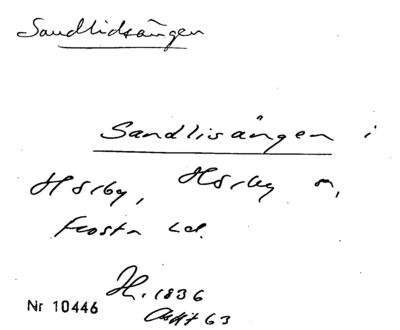 Sandlidsängen
Sandlisängen i
Hörby, Hörby sn,
Frosta hd.
H. 1836
Akt 63
Nr 10446